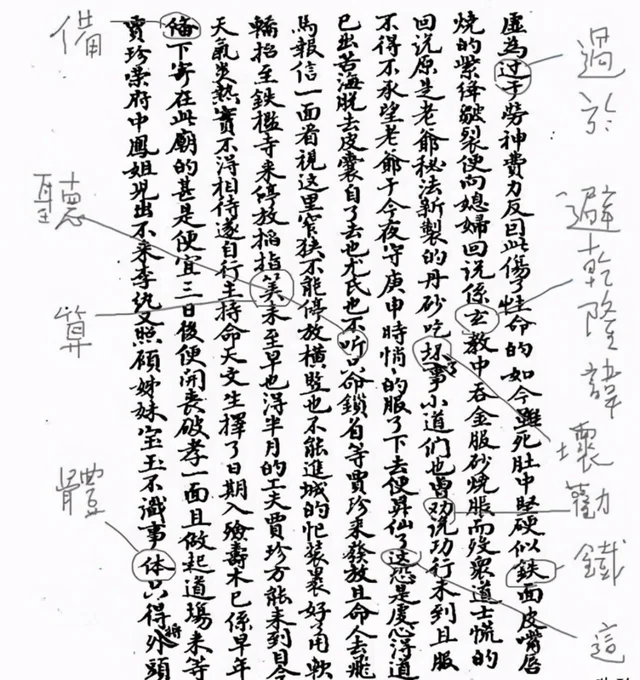 虛為过于勞神費力反因此傷了性命的如今雖死肚中堅硬似鉄面皮嘴唇
燒的紫絳皺裂便向媳婦回说係玄教中吞金服砂燒脹而歿衆道士慌的
回说原是老爺秘法新製的丹砂吃坏了事小道们也曾劝说功行未到且服
不得不承望老爺于今夜守庚申時悄々的服了下去便昇仙了这恐是虔心得道
已出苦海脱去皮囊自了去也尤氏也不听只命鎖着等賈珍来發放且命人去飛
馬報信一面看視这里窄狹不能停放横豎也不能進城的忙裝裹好了用軟
轎抬至鉄檻寺来停放掐指筭来至早也得半月的工夫賈珍方能来到目今
天氣炎熱實不得相待遂自行主持命天文生擇了日期入殮壽木已係早年
俻下寄在此廟的甚是便宜三日後便開喪破孝一面且做起道場来等
賈珍荣府中鳳姐児出不来李纨又照顧姊妹宝玉不識事体只得将外頭
過於
避乾隆諱
壞
勸
鐵
這
備
聽
算
體